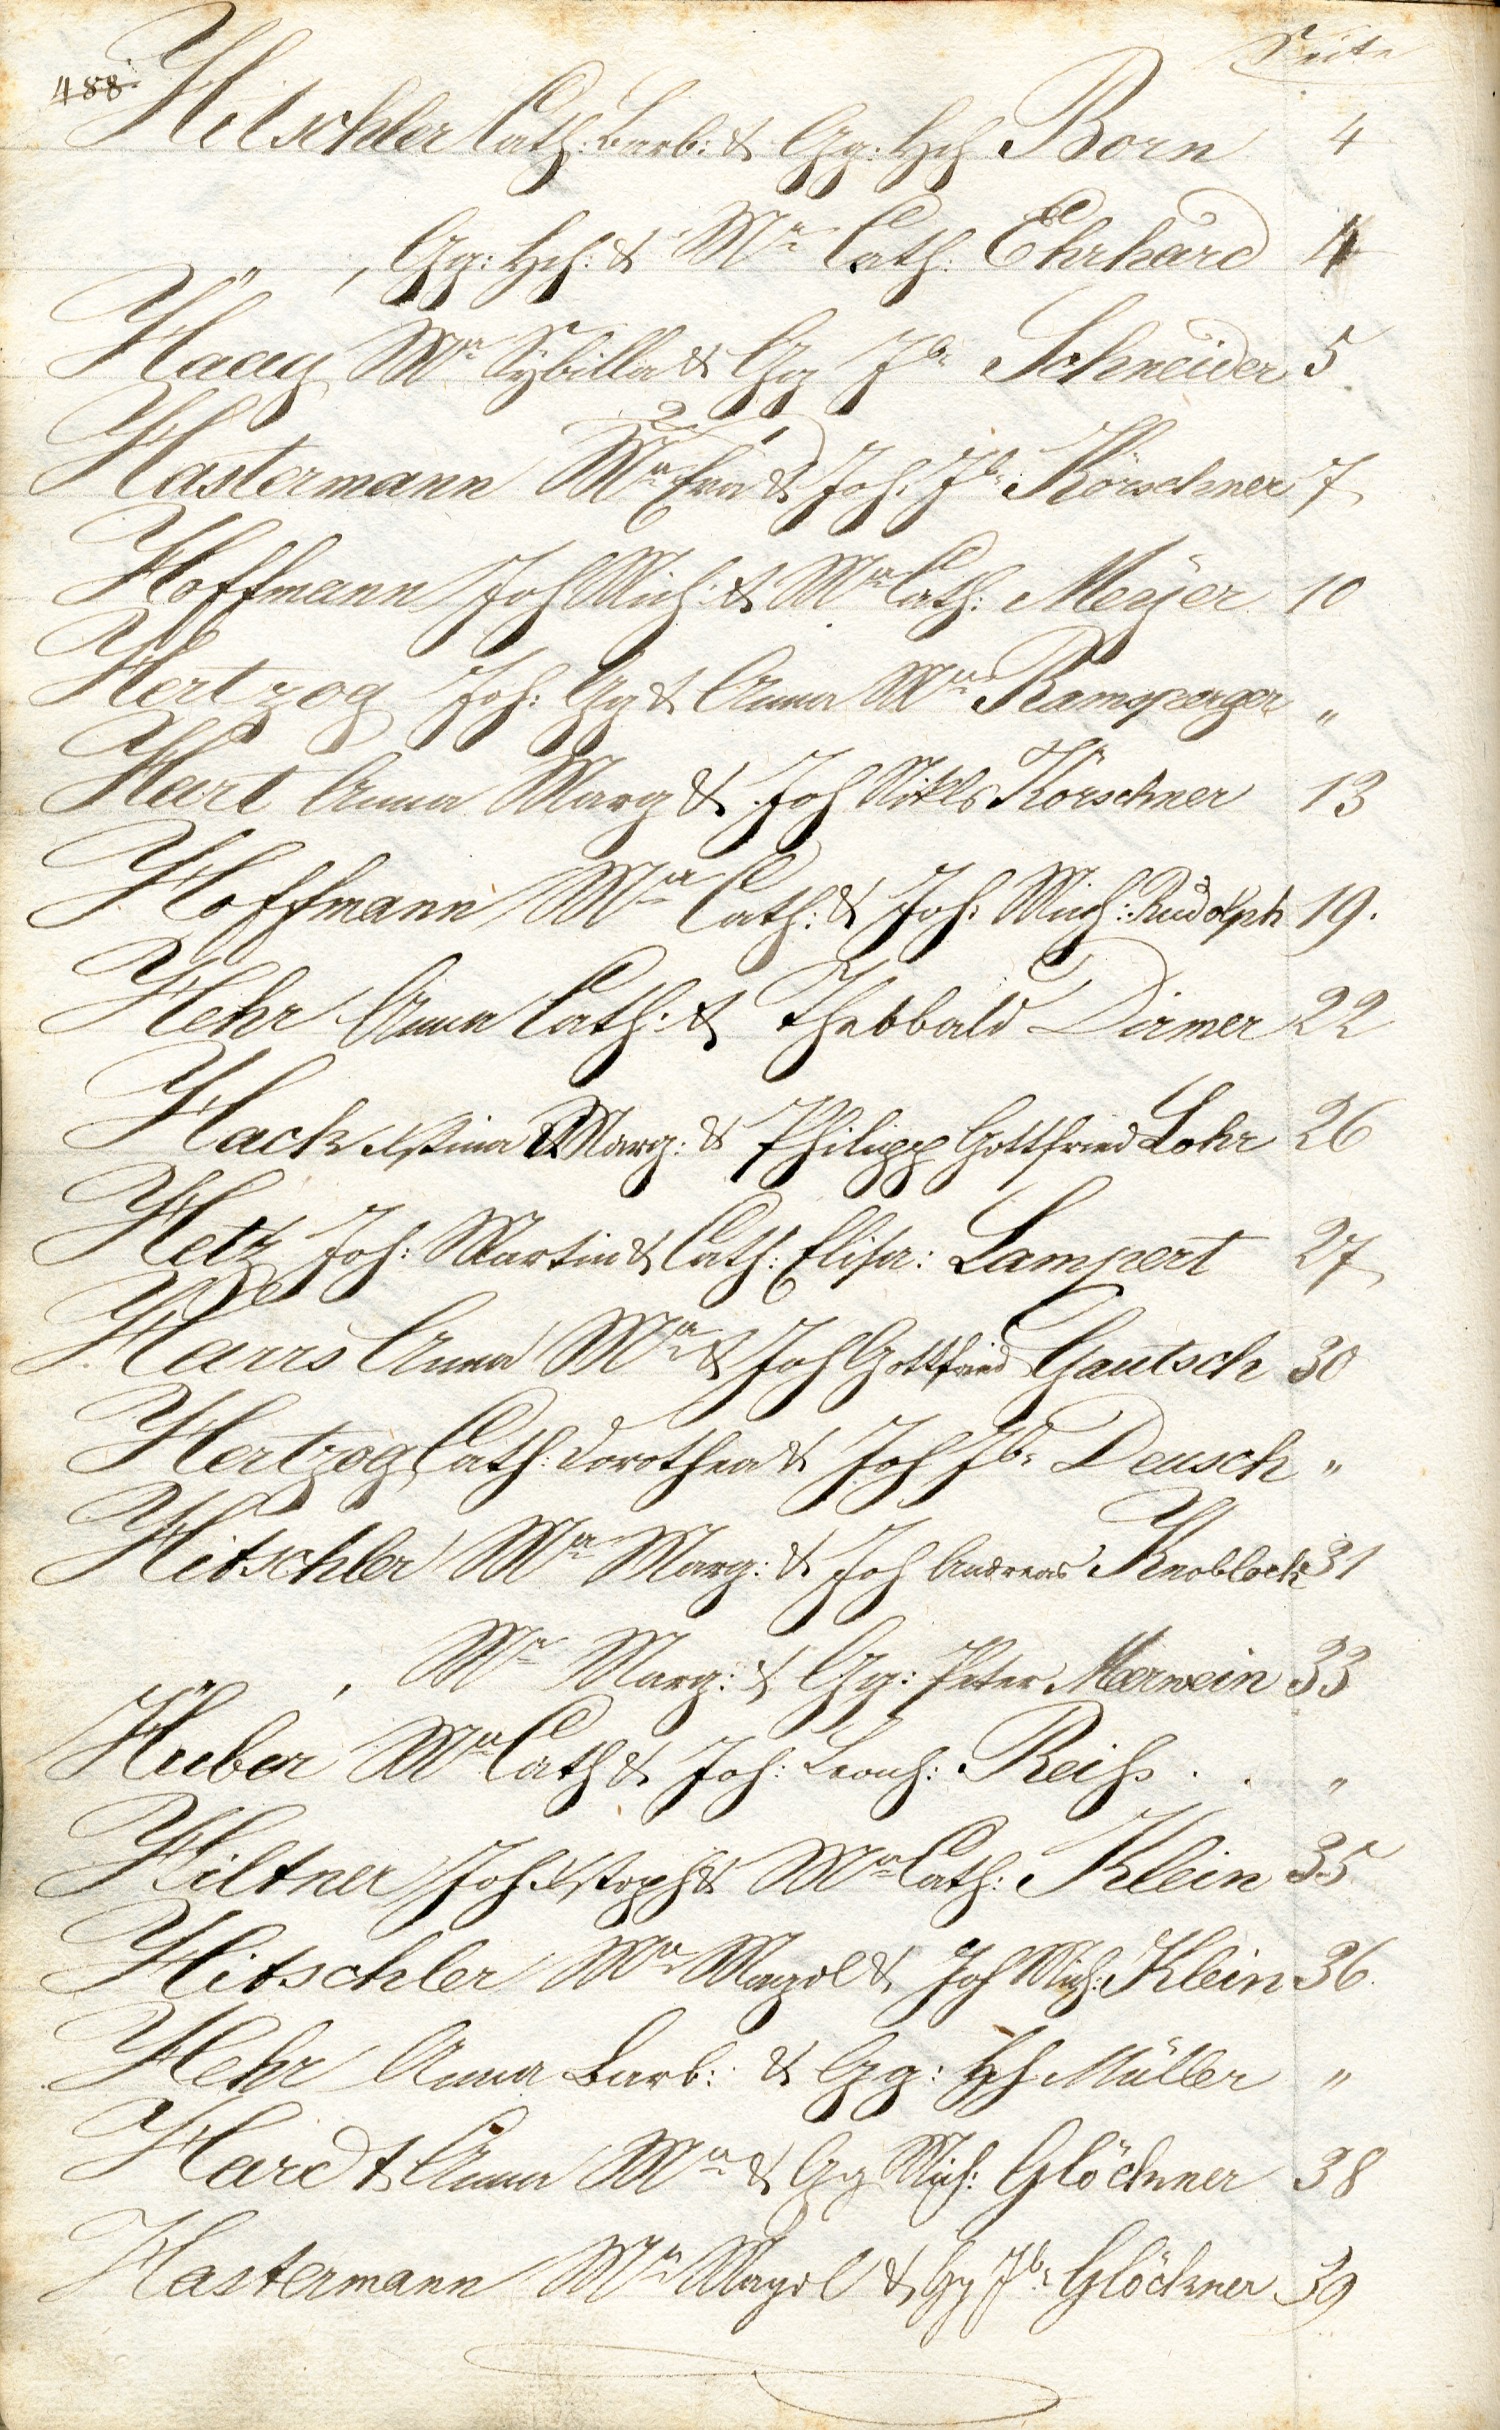 Seite
488. Hitschler Cath: Barb: & Gg: Hch Born 4
" , Gg: Hch: & Ma Cath: Ehrhard 4
Haag Ma Sybilla & Gg Jb: Schneider 5
Hastermann Ma Eva & Joh: Jb: Körschner 7
Hoffmann Joh Mich: & Ma Cath: Meÿer 10
Hertzog Joh: Gg & Anna Ma Ramsperger "
Hart Anna Marg & Joh Nikls Körschner 13
Hoffmann Ma Cath: & Joh: Mich: Rudolph 19.
Hehr Anna Cath: & Thebbald Dirmer 22
Hack Xstina Marg: & Philipp Gottfried Lohr 26
Hetz Joh: Martin & Cath: Elisa: Lampert 27
Harrs Anna Ma & Joh Gottfried Gautsch 30
Hertzog Cath: Dorothea & Joh Jb: Deusch "
Hitschler Ma Marg: & Joh Andreas Knobloch 31
" , Ma Marg: & Gg: Peter Merwein 33
Huber Ma Cath & Joh: Leonh: Reiß . . "
Hiltner Joh Xstoph & Ma Cath: Klein 35
Hitschler Ma Magdl & Joh Mich: Klein 36.
Hehr Anna Barb: & Gg: Hch Müller "
Hardt Anna Ma & Gg Mich: Glöckner 38
Hastermann Ma Magdl & Gg Jb: Glöckner 39